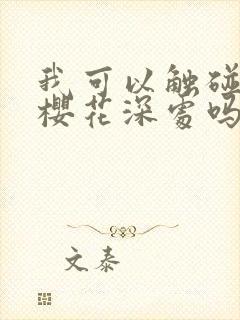 我可以触碰
樱花深处吗
文泰